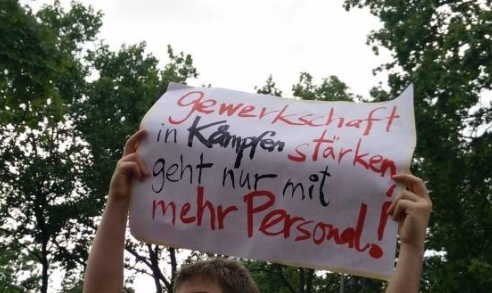 Gewerkschaft
in Kämpfen stärken,
geht nur mit
mehr Personal!